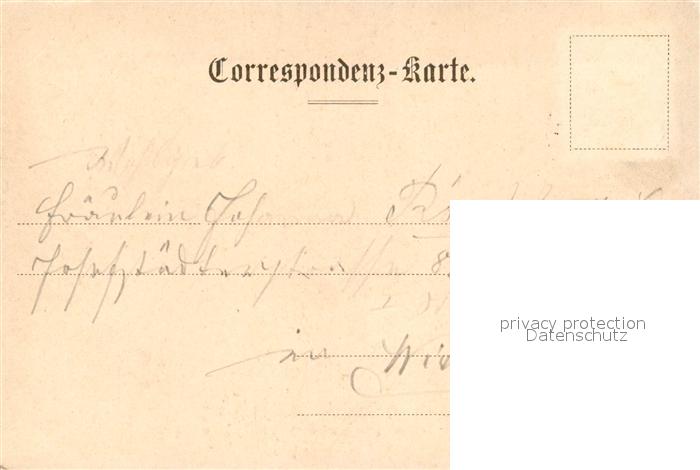 Correspondenz-Karte.
Wohlgeb
Fräulein Johanna
Josefstädterstraße 8
in Wi
privacy protection
Datenschutz